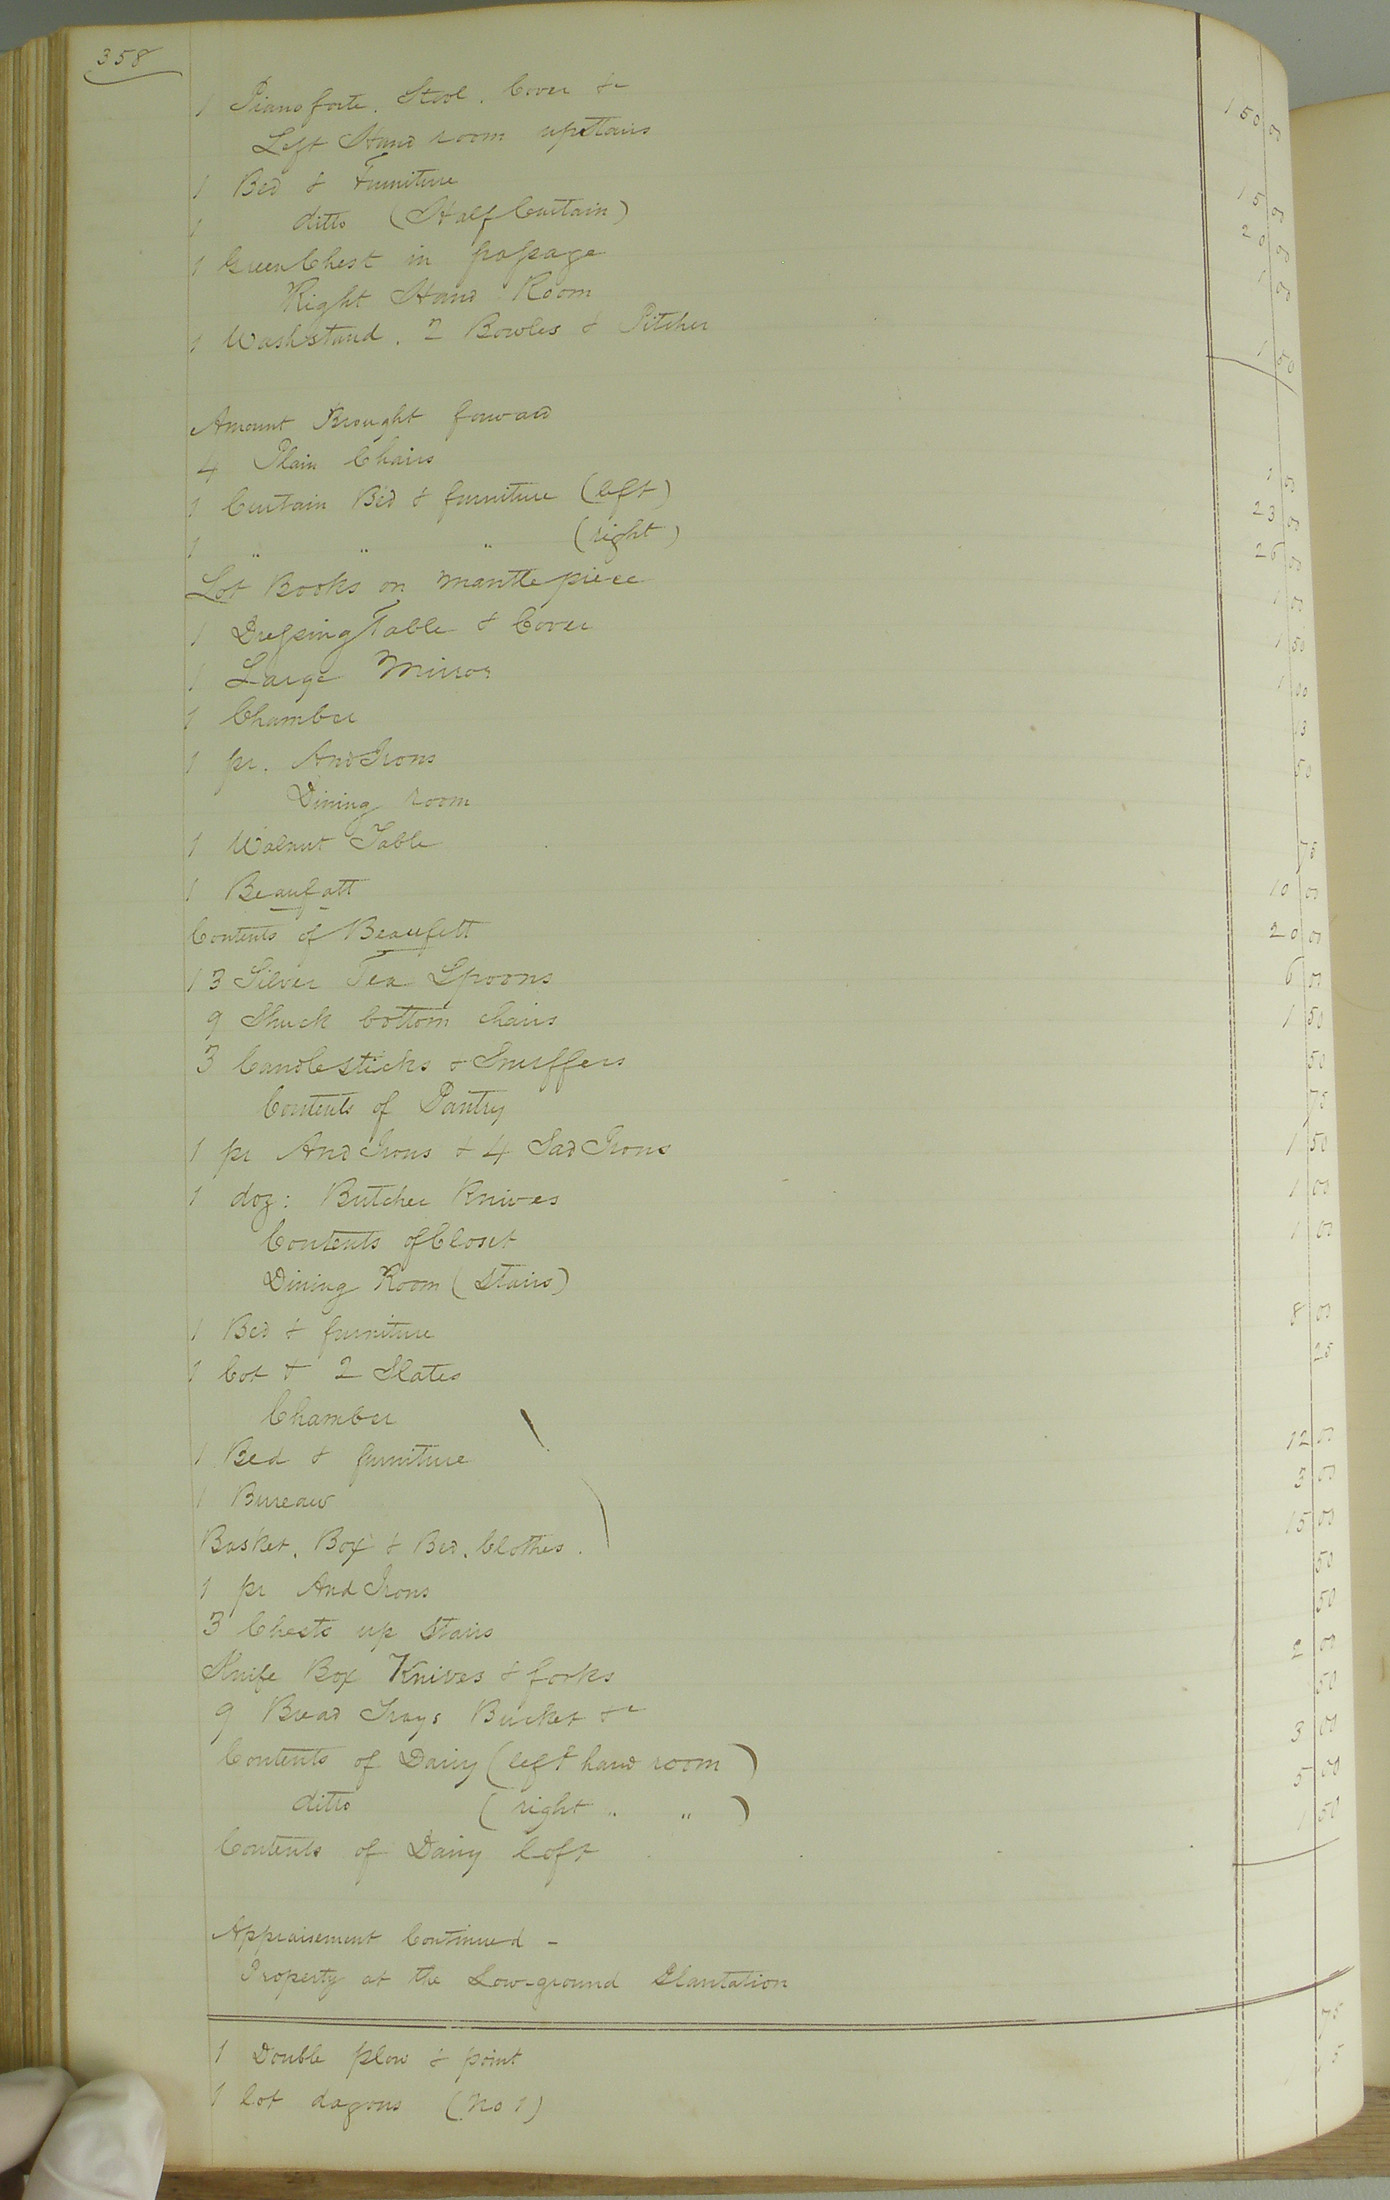 358
1 Piano forte. Stool. Cover &c 150 00
Left Hand room upstairs
1 Bed & Furniture 15 00
1 ditto (Half Curtain) 20 00
1 Green Chest in passage 1 00
Right Hand Room
1 Washstand. 2 Bowles & Pitcher 1 50
Amount Brought forward
4 Plain Chairs 1 00
1 Curtain Bed & furniture (left) 23 00
1 " " " (right) 26 00
Lot Books on Mantlepiece 1 00
1 Dressing Table & Cover 1 50
1 Large Mirror 1 00
1 Chamber 13
1 pr. And Irons 50
Dining room
1 Walnut Table 75
1 Beaufatt 10 00
Contents of Beaufett 20 00
13 Silver Tea Spoons 6 00
9 Shuck bottom chairs 1 50
3 Candlesticks & Snuffers 50
Contents of Pantry 75
1 pr And Irons & 4 Sad Irons 1 50
1 doz: Butcher Knives 1 00
Contents of Closet 1 00
Dining Room (Stairs)
1 Bed & furniture 8 00
1 Cot & 2 Slates 25
Chamber
1 Bed & furniture 12 00
1 Bureau 5 00
Basket. Box & Bed. Clothes. 15 00
1 pr And Irons 50
3 Chests up Stairs 50
Knife Box Knives & forks 2 00
9 Bread Trays Bucket &c 50
Contents of Dairy (left hand room) 3 00
ditto (right " ") 5 00
Contents of Dairy loft 1 50
Appraisement Continued -
Property at the Low-ground Plantation
1 Double plow & point 75
1 lot dagons (No 1)